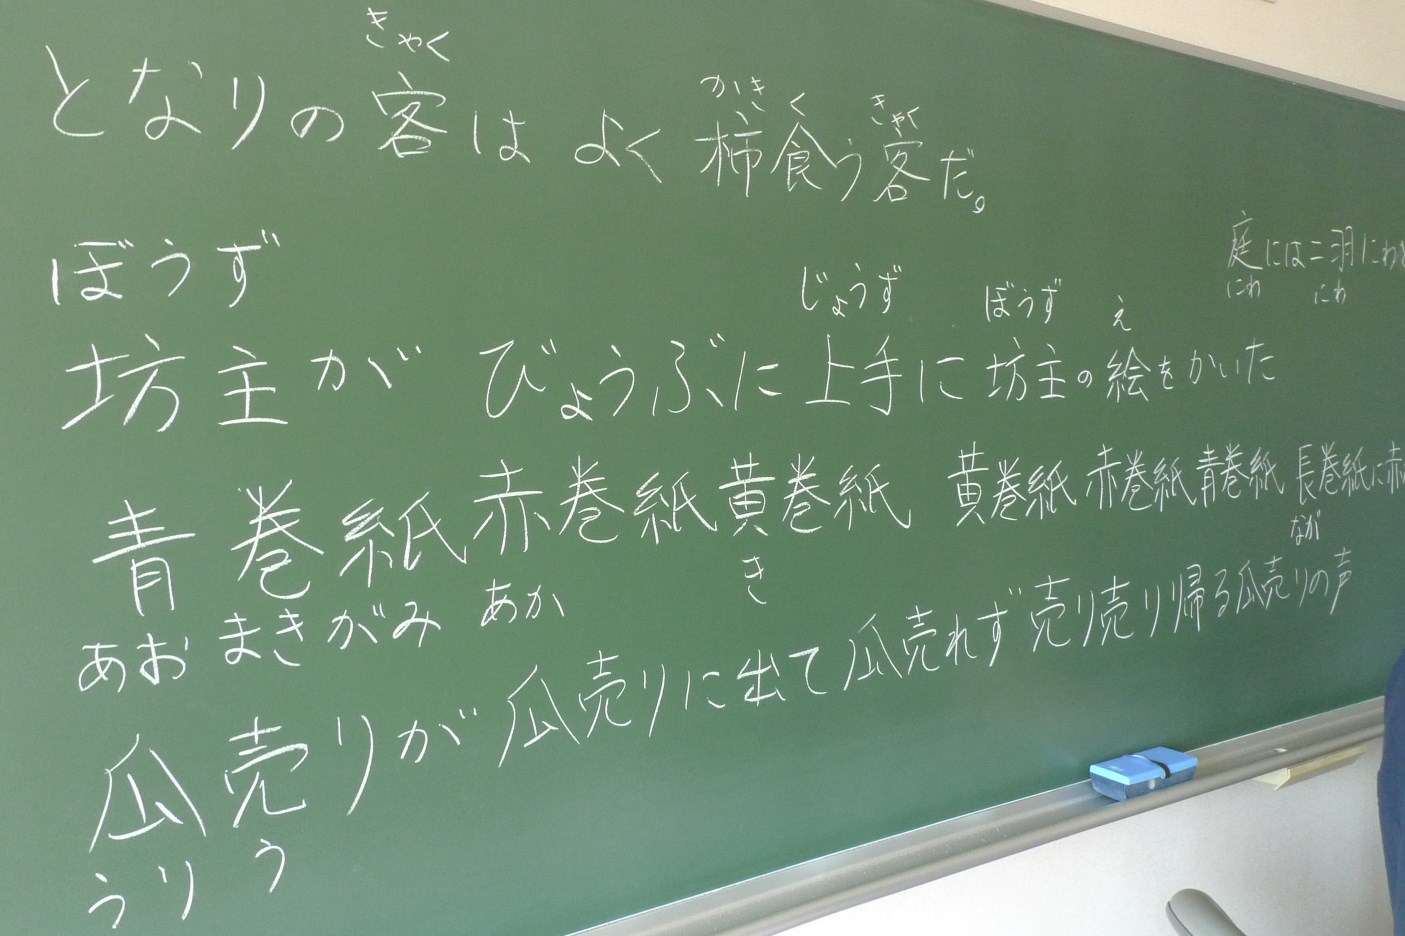 きゃく かき く きゃく
となりの客は よく柿食う客だ。
ぼうず じょうず ぼうず え
坊主が びょうぶに上手に坊主の絵をかいた
庭には二羽にわ
にわ にわ
青巻紙赤巻紙黄巻紙 黄巻紙赤巻紙青巻紙 長巻紙に赤
あお まきがみ あか き なが
瓜売りが瓜売りに出て瓜売れず売り売り帰る瓜売りの声
うり う